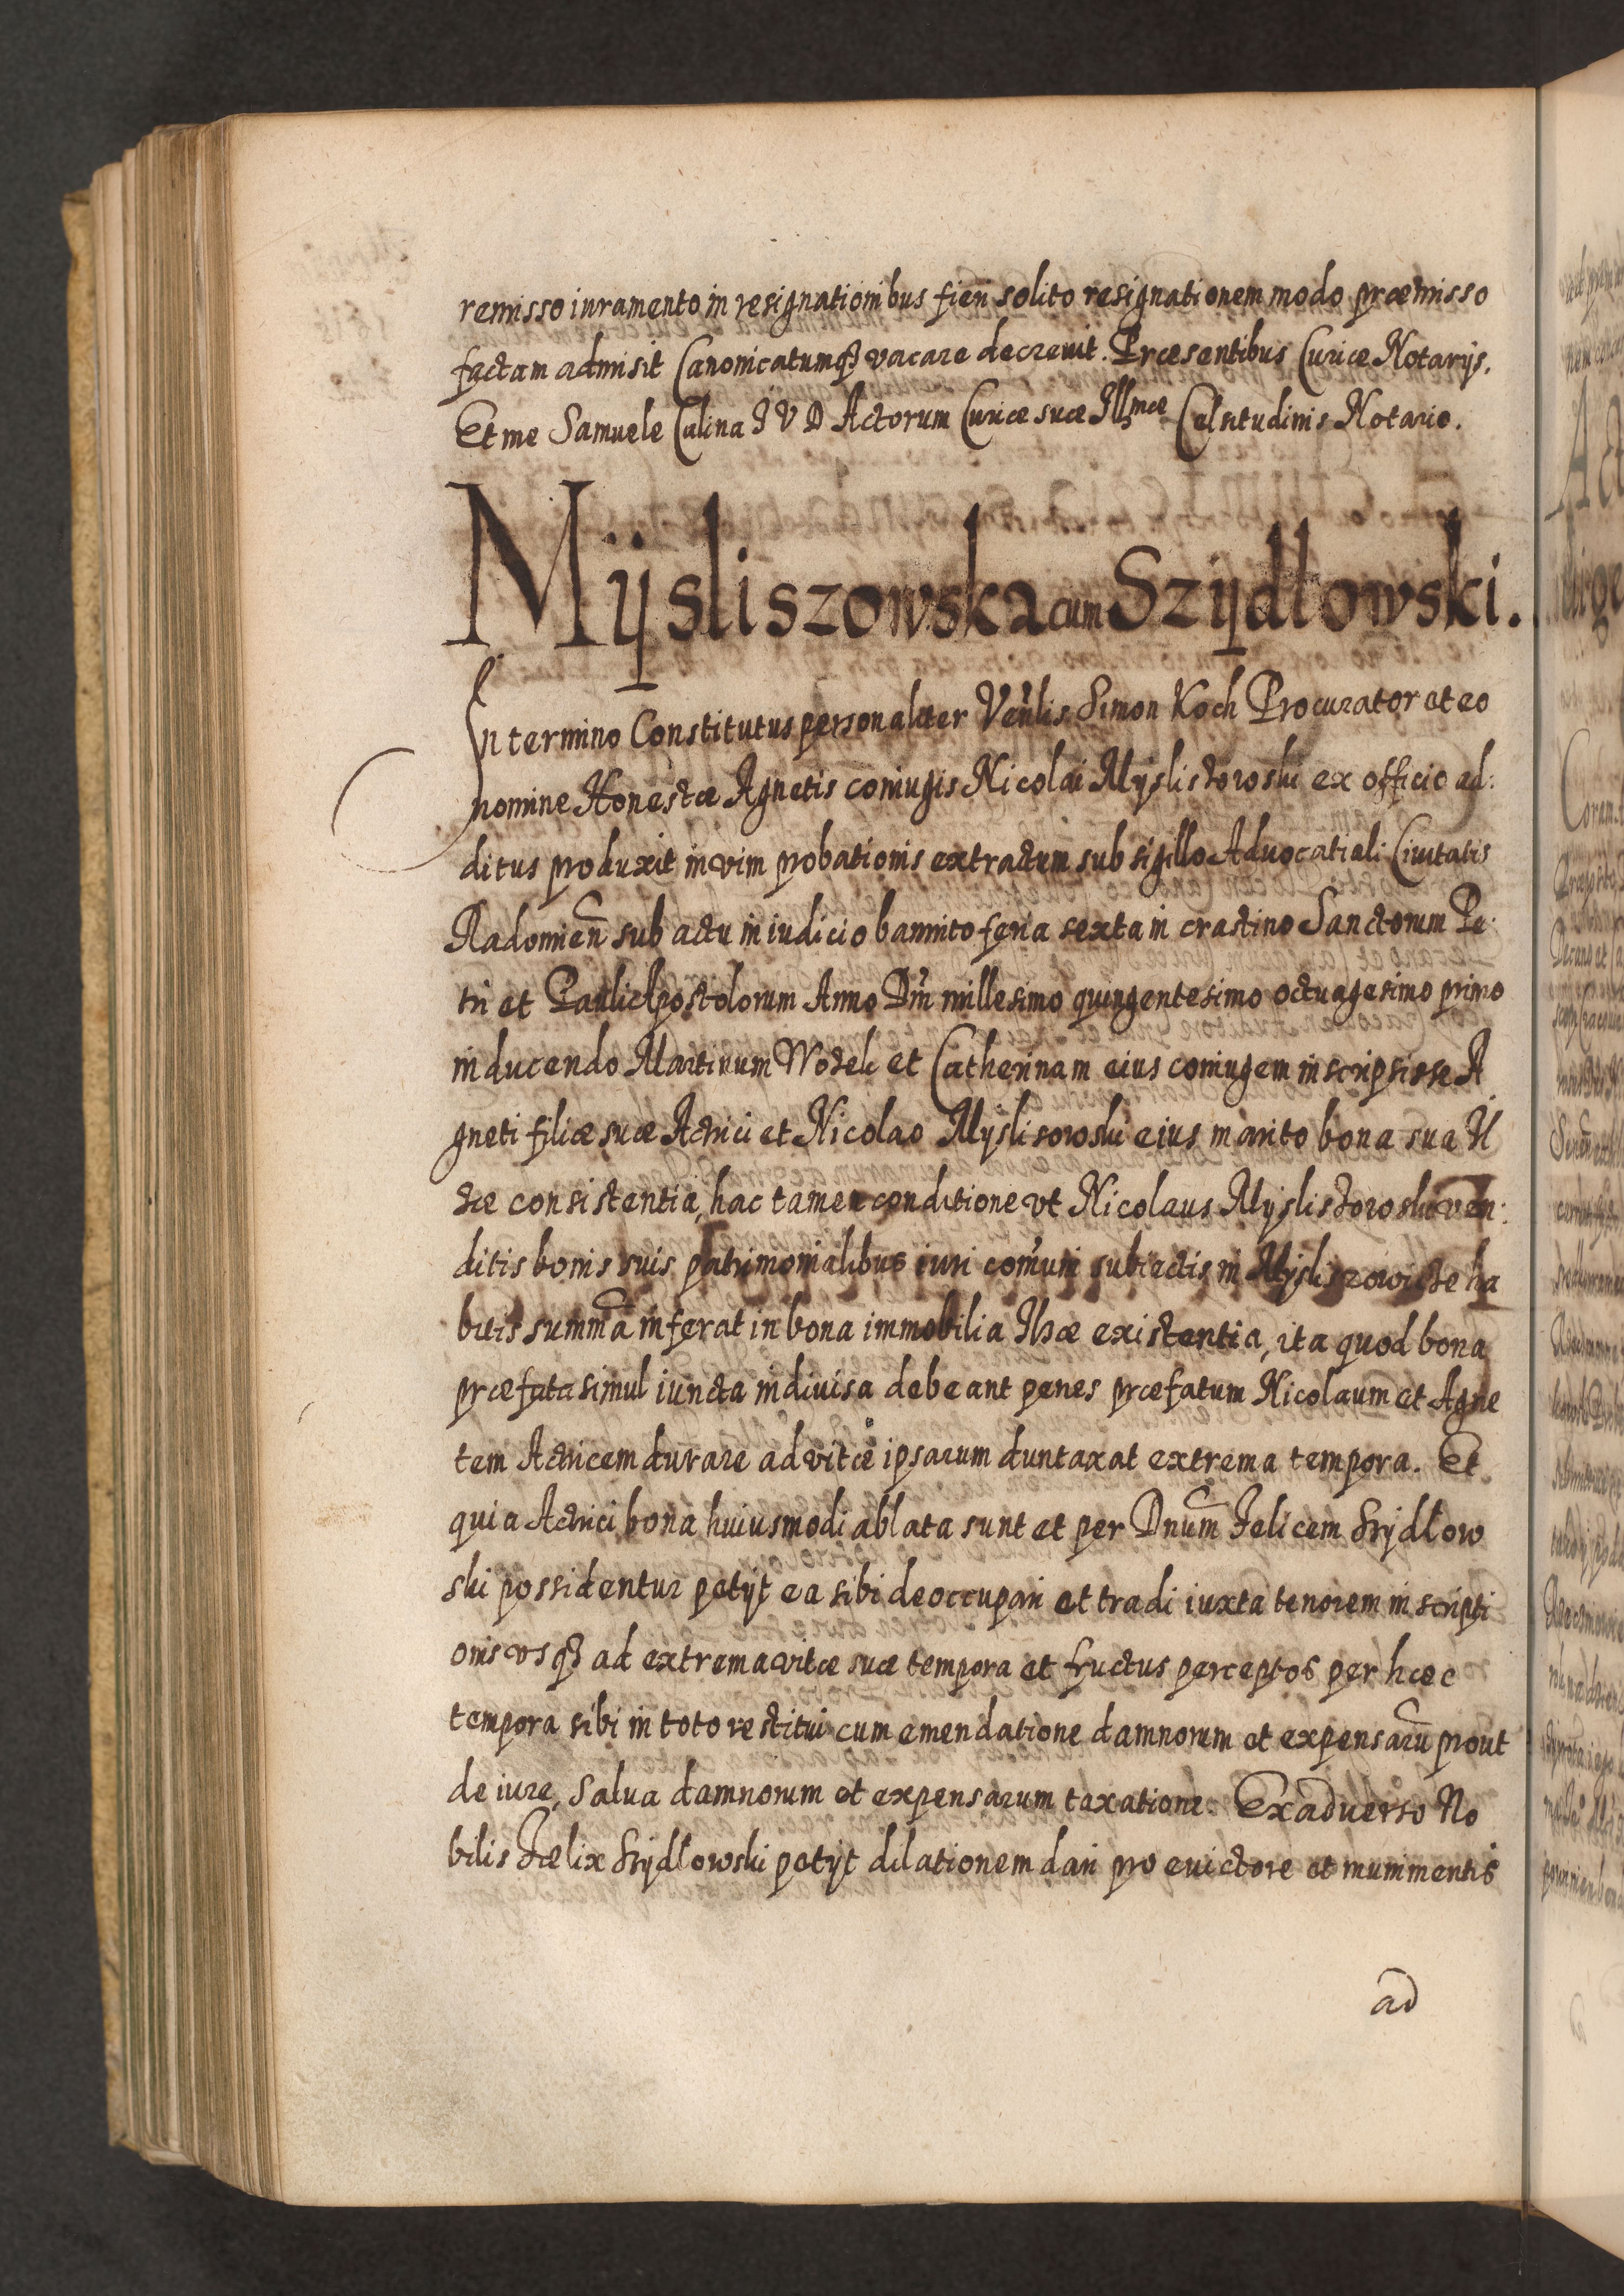 remisso iuramento in resignationibus fieri solito resignationem modo præmisso
factam admisit Canonicatumq3 vacare decrevit. Præsentibus Curiæ Notarijs.
Et me Samuele Calina I V D Actorum Curiæ suæ Illmæ Celsitudinis Notario.
Mÿsliszowska cum Szÿdlowski.
In termino Constitutus personaliter Venlis Simon Koch Procurator et eo
nomine Honestæ Agnetis coniugis Nicolai Myslisowski ex officio ad:
ditus produxit in vim probationis extractum sub sigillo Advocatiali Civitatis
Radomien sub actu in iudicio bannito feria sexta in crastino Sanctorum Pe:
tri et Pauli Apostolorum Anno Dni millesimo quingentesimo octuagesimo primo
inducendo Martinum Wodek et Catherinam eius coniugem inscripsisse A
gneti filiæ suæ Actrici et Nicolao Myslisowski eius marito bona sua Il
zæ consistentia, hac tamen conditione vt Nicolaus Myslisowski ven:
ditis bonis suis patrimonialibus iuri comuni subiectis in Mysliszowicze ha
bitis summa inferat in bona immobilia Ilzæ existentia, ita quod bona
præfata simul iuncta indivisa debeant penes præfatum Nicolaum et Agne
tem Actricem durare ad vitæ ipsarum duntaxat extrema tempora. Et
quia Actrici bona huiusmodi ablata sunt et per Dnum Felicem Szydlow
ski possidentur petijt ea sibi deoccupari et tradi iuxta tenorem inscripti
onis vsq3 ad extrema vitæ suæ tempora et fructus perceptos per hæc
tempora sibi in toto restitui cum emendatione damnorum et expensaru prout
de iure, salva damnorum et expensarum taxatione. Ex adverso No
bilis Fælix Szydlowski petijt dilationem dari pro evictore et munimentis
ad